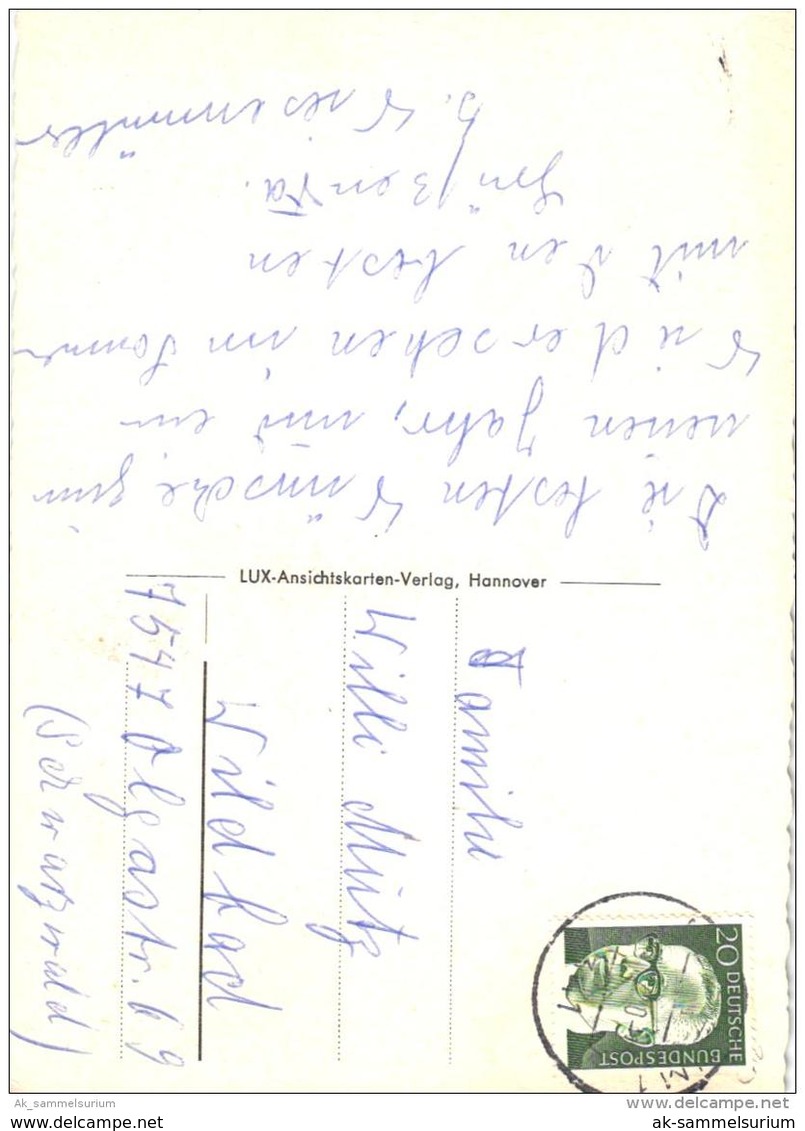 Die besten Wünsche zum
neuen Jahr, und ein
Wiedersehen im Sommer
mit den besten
Grüßen Fa.
LUX-Ansichtskarten-Verlag, Hannover
Familie
Willi
Wildbad
7547 Olgastr. 69
(Schwarzwald)
20 DEUTSCHE
BUNDESPOST
Ak_sammelsurium
delcampe.net
ak-sammelsurium.com